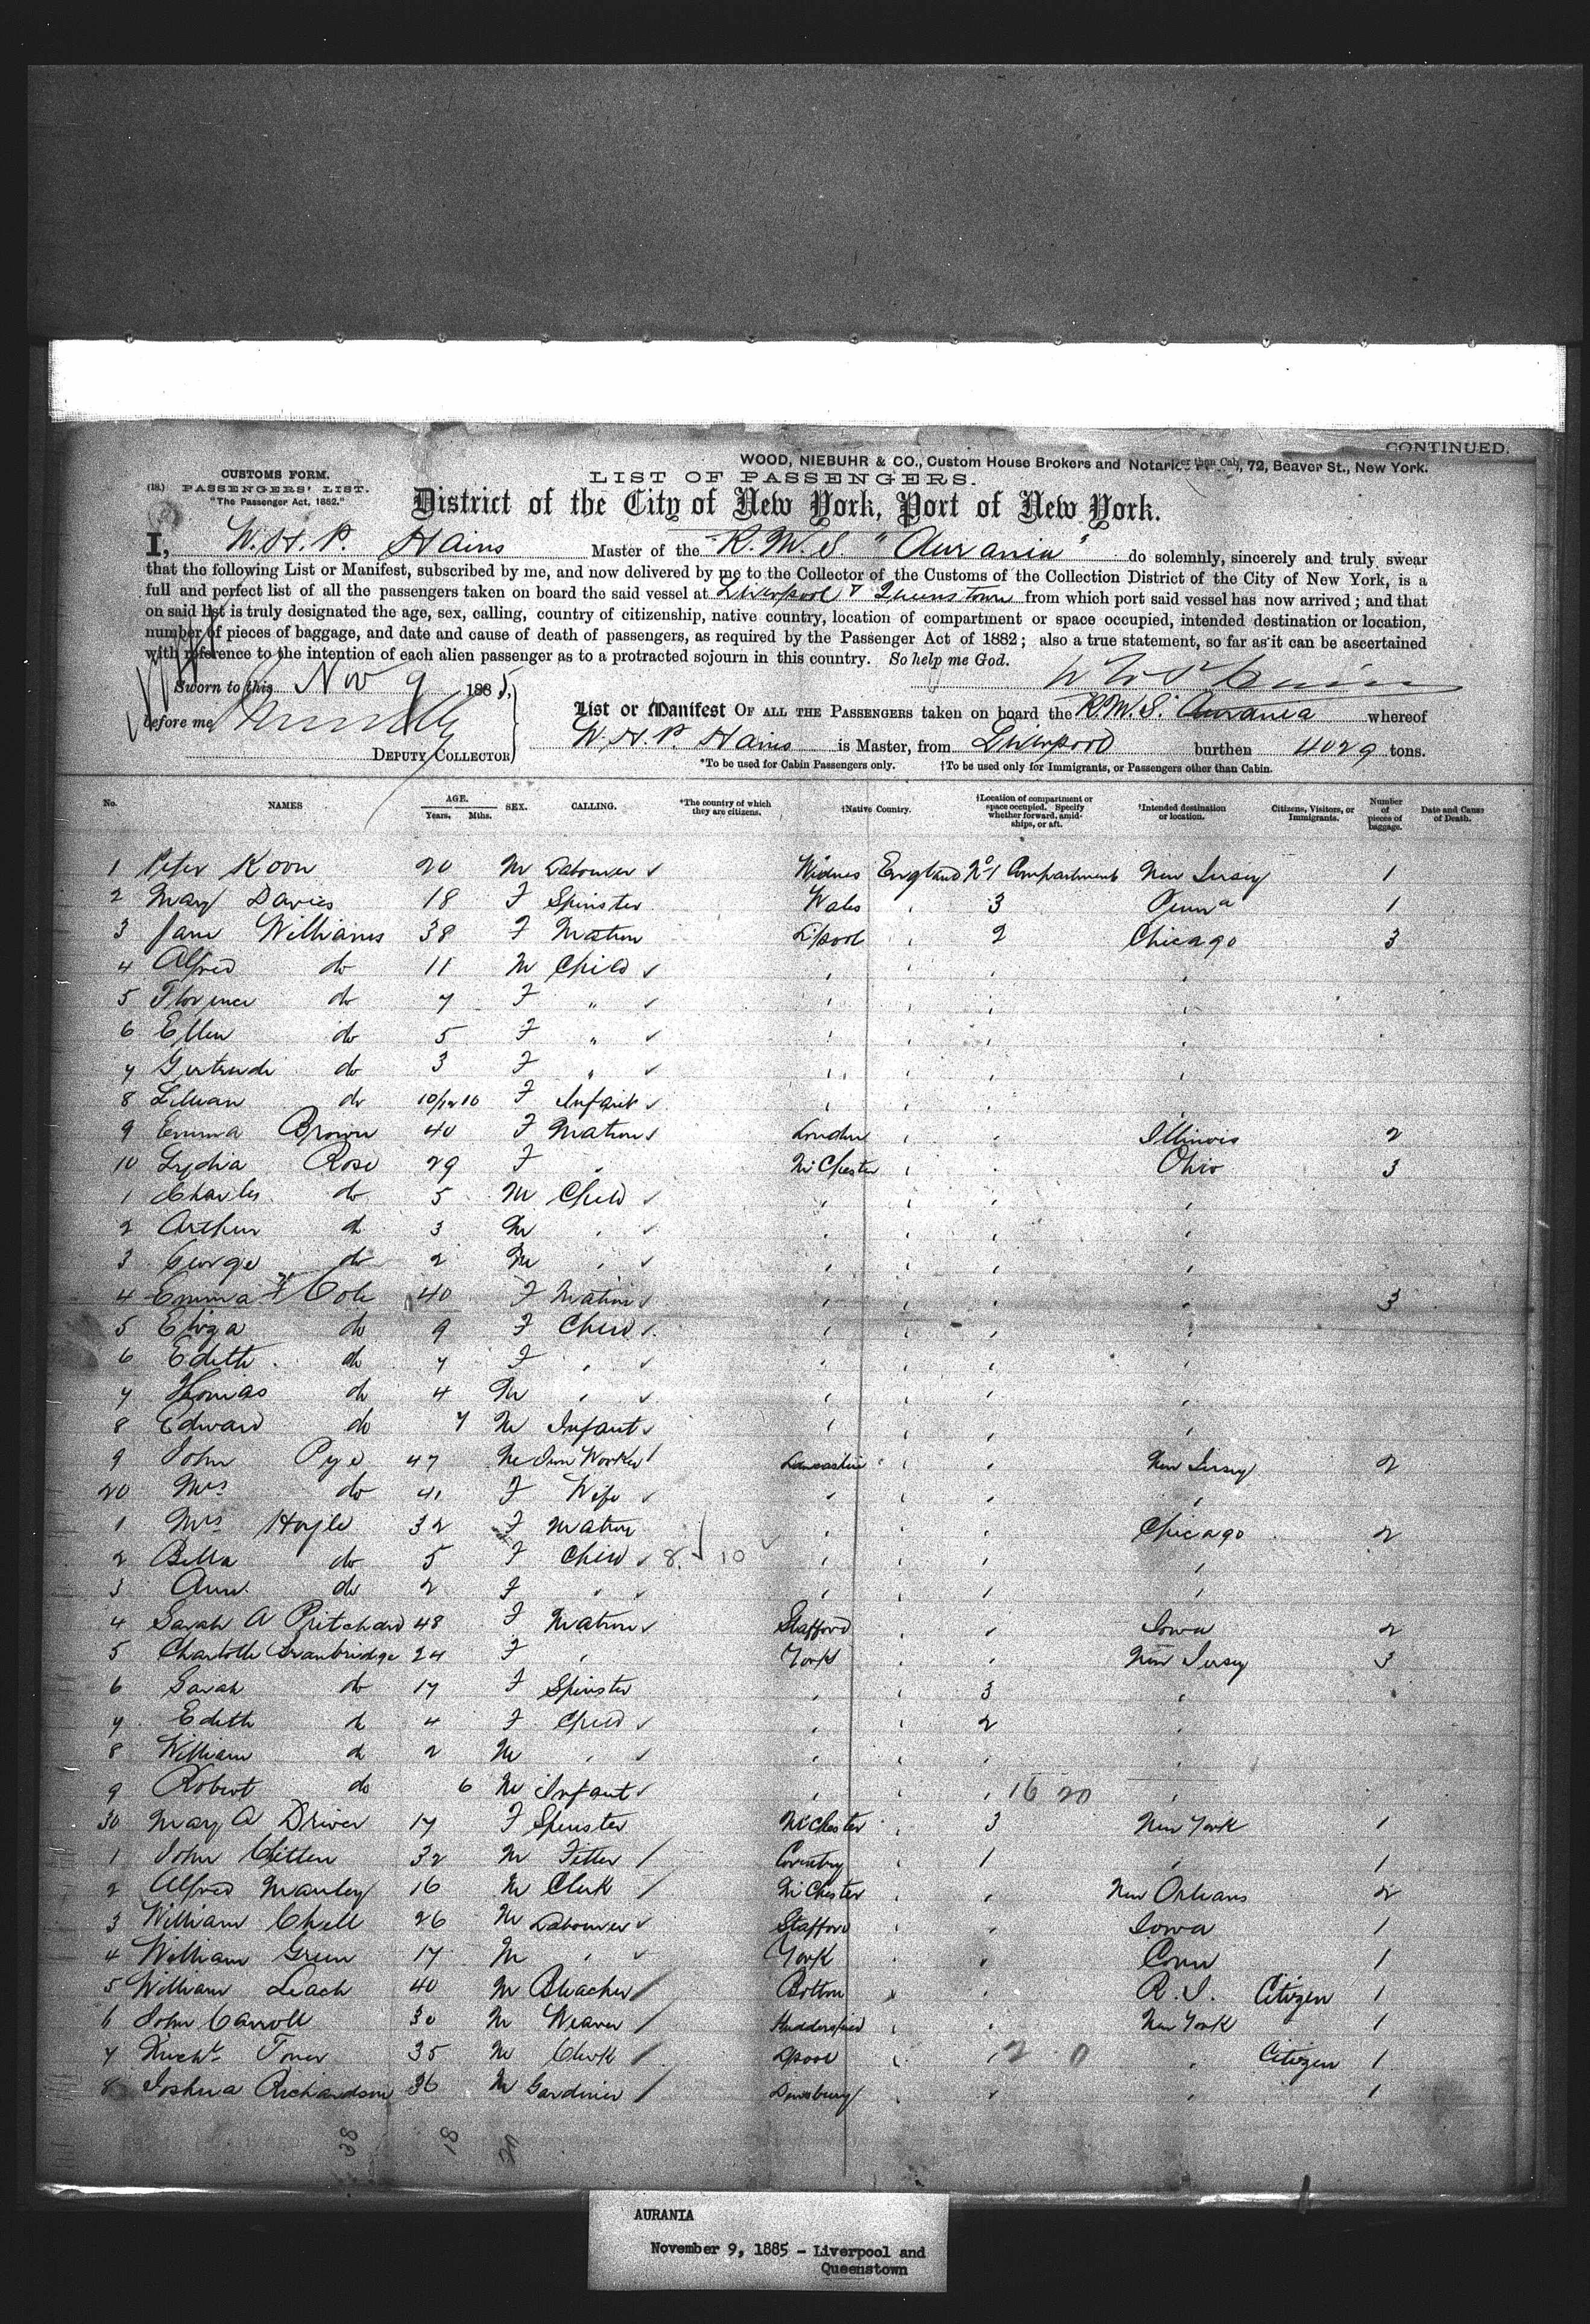 CONTINUED.
WOOD, NIEBUHR & CO., Custom House Brokers and Notaries 72, Beaver St., New York.
CUSTOMS FORM.
LIST OF PASSENGERS.
(18.) PASSENGERS' LIST.
"The Passenger Act, 1882."
District of the City of New York, Port of New York.
I, W. H. P. Hains Master of the R.M.S. "Aurania" do solemnly, sincerely and truly swear
that the following List or Manifest, subscribed by me, and now delivered by me to the Collector of the Customs of the Collection District of the City of New York, is a
full and perfect list of all the passengers taken on board the said vessel at Liverpool & Queenstown from which port said vessel has now arrived; and that
on said list is truly designated the age, sex, calling, country of citizenship, native country, location of compartment or space occupied, intended destination or location,
number of pieces of baggage, and date and cause of death of passengers, as required by the Passenger Act of 1882; also a true statement, so far as it can be ascertained
with reference to the intention of each alien passenger as to a protracted sojourn in this country. So help me God.
Sworn to this Nov 9 1885.
before me
List or Manifest OF ALL THE PASSENGERS taken on board the R.M.S. Aurania whereof
W. H. P. Hains is Master, from Liverpool burthen 4029 tons.
DEPUTY COLLECTOR
*To be used for Cabin Passengers only. †To be used only for Immigrants, or Passengers other than Cabin.
No. NAMES AGE. Years, Mths. SEX. CALLING. *The country of which they are citizens. †Native Country. †Location of compartment or space occupied. Specify whether forward, amidships, or aft. †Intended destination or location. Citizens, Visitors, or Immigrants. Number of pieces of baggage. Date and Cause of Death.
1 Peter Koon 20 M Labourer ✓ Widnes England No 1 Compartment New Jersey 1
2 Mary Davies 18 F Spinster Wales " 3 Penna 1
3 Jane Williams 38 F Matron L'pool " 2 Chicago 3
4 Alfred do 11 M Child ✓ " " " "
5 Florence do 7 F " ✓ " " " "
6 Ellen do 5 F " ✓ " " " "
7 Gertrude do 3 F " ✓ " " " "
8 Lillian do 10/12 10 F Infant ✓ " " " "
9 Emma Brown 40 F Matron ✓ London " " Illinois 2
10 Lydia Rose 29 F " M'Chester " " Ohio 3
1 Charles do 5 M Child ✓ " " " "
2 Arthur do 3 M " ✓ " " " "
3 George do 2 M " ✓ " " " "
4 Emma F Cole 40 F Matron ✓ " " " " 3
5 Eliza do 9 F Child ✓ " " " "
6 Edith do 7 F " ✓ " " " "
7 Thomas do 4 M " ✓ " " " "
8 Edward do 7 M Infant ✓ " " " "
9 John Pye 47 M Iron Worker / Lancashire " " New Jersey 2
20 Mrs do 41 F Wife ✓ " " " "
1 Mrs Hoyle 32 F Matron " " " Chicago 2
2 Bella do 5 F Child ✓ 8 ✓ 10 ✓ " " "
3 Ann do 2 F " ✓ " " "
4 Sarah A Pritchard 48 F Matron ✓ Stafford " " Iowa 2
5 Charlotte 24 F " York " " New Jersey 3
6 Sarah do 17 F Spinster " " 3 "
7 Edith do 4 F Child ✓ " " 2 "
8 William do 2 M " ✓ " " " "
9 Robert do 6 M Infant ✓ " " " 16 20 "
30 Mary A Driver 17 F Spinster M'Chester " 3 New York 1
1 John 32 M Fitter / Coventry " 1 " 1
2 Alfred Manley 16 M Clerk / M'Chester " " New Orleans 2
3 William Chell 26 M Labourer ✓ Stafford " " Iowa 1
4 William Green 17 M " ✓ York " " Conn 1
5 William Leach 40 M Bleacher / Bolton " " R. I. Citizen 1
6 John Carroll 30 M Weaver / Huddersfield " " New York 1
7 35 M Clerk / Lpool " " 2 0 " Citizen 1
8 Joshua Richardson 36 M Gardiner / Dewsbury " " " 1
38 18 20
AURANIA
November 9, 1885 - Liverpool and
Queenstown